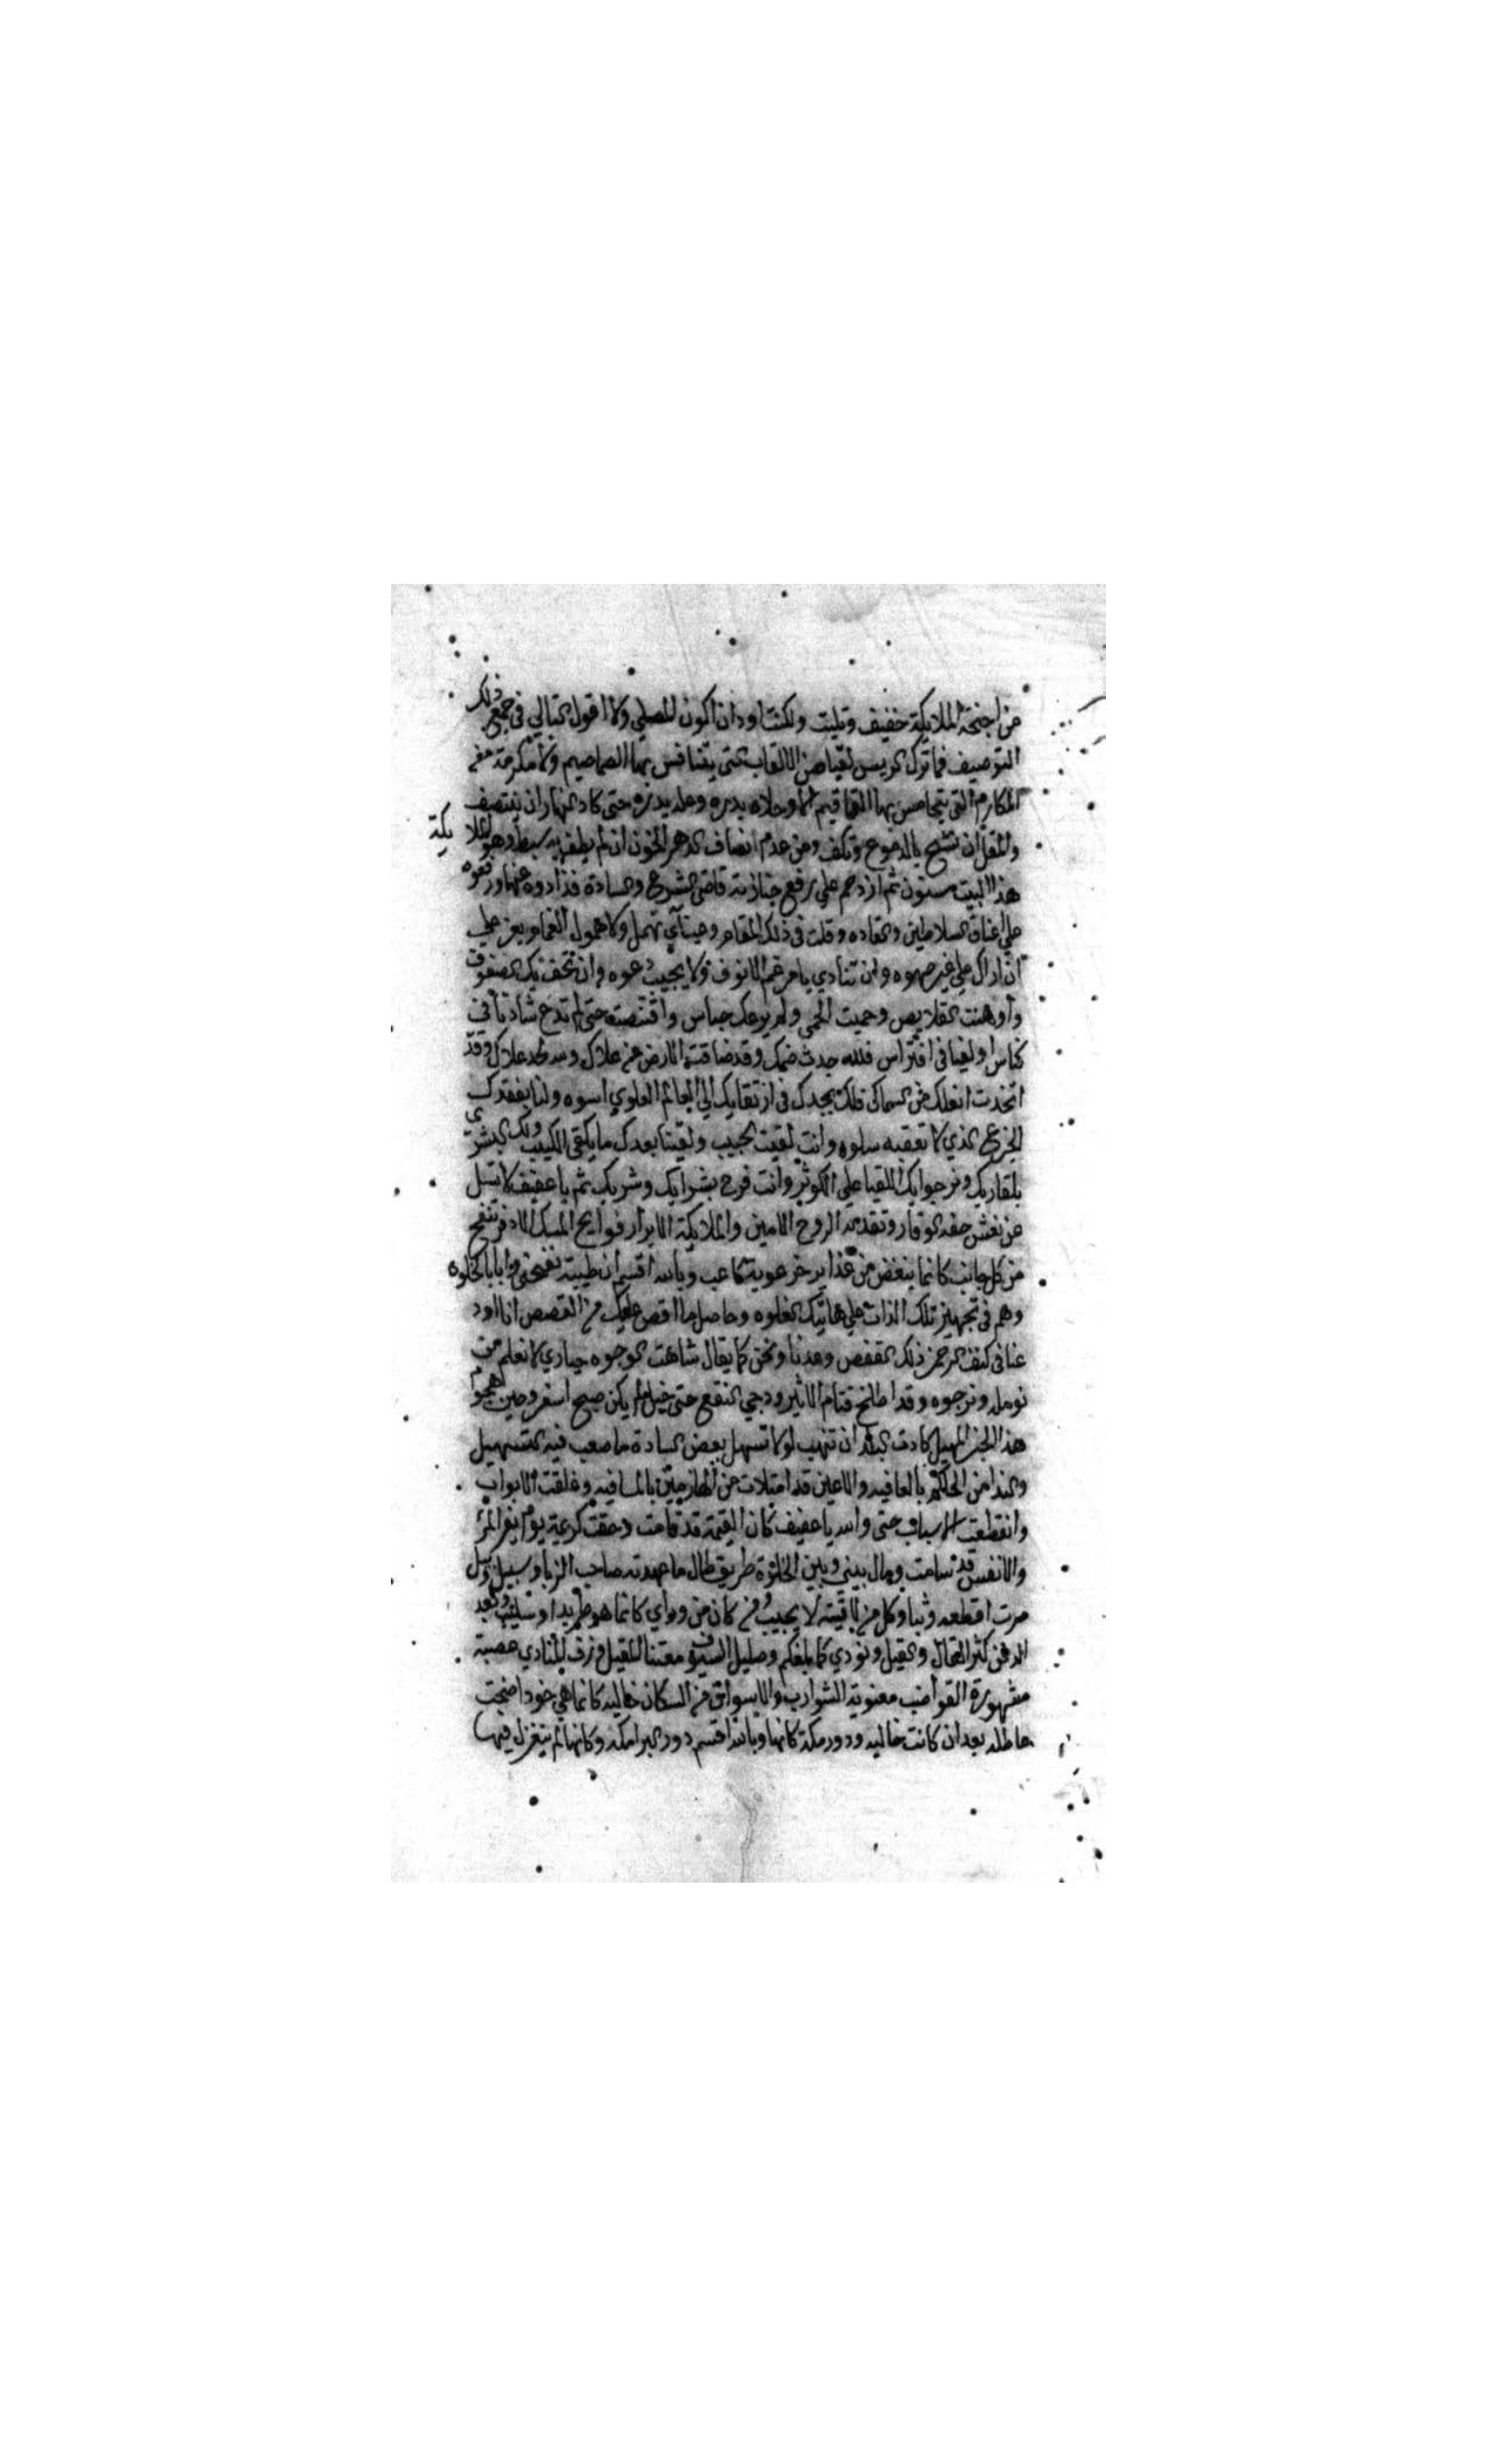 من اجنحة الملايكة خفيف وتليت ولكنت اود ان اكون المصلي ولا اقول التالي في جميع ذلك
التوصيف فما ترك الريس لقبا من الالقاب التي يتنافس بها الصماصيم ولا مكرمة من
المكارم التي بها القماقيم الا وحلاه بدره حتى كاد النهار ان ينتصف
والمقل ان تشح بالدموع وتكف ومن عدم انصاف الدهر الخون ان لم يطف به وهو لملايكة
هذا البيت مسنون ثم ازدحم علي رفع جنازته قاضي الشرع والسادة عنها ورفعوه
علي اعناق السلاطين والقاده وقلت في ذلك المقام وعيناي تهمل ولا همول الغمام يعز علي
ان اراك علي غير صهوه وان تنادي يا مرغم الانوف فلا يجيب دعوه وان تحف بك الصفوف
واوهنت القلايص وحميت الحمي ولم يرعك جساس واقتنصت حتى لم تدع شادنا في
كناس او ليثا في افتراس فلله جدث ضمك وقد ضاقت الارض عن علاك وقد
اتخذت انعلك من السماك فلك بجدك في ارتقايك الي العالم العلوي اسوه ولنا بفقدك
الجزع الذي لا تعقبه سلوه وانت لقيت الحبيب ولقينا بعدك ما يلقى الكيب ولك البشرى
بلقا ربك ونرجوا بك اللقيا علي الكوثر وانت فرح بشرابك وشربك ثم يا عفيف لا تسل
عن نعش حفه الوقار وتقدمه الروح الامين والملايكة الابرار فوايح المسك الاذفر تنفح
من كل جانب كانما ينفض من غداير خرعوبة كاعب وبالله اقسم ان طيبته نفحتني وانا بالخلوه
وهم في تجهيز تلك الذات علي هاتيك العلوه وحاصل ما اقص عليك من القصص انا اود
عنا في كنف الرحمن ذلك القفص وعدنا ونحن كما يقال شاهت الوجوه حيارى لا نعلم من
نومله ونرجوه وقد قتام الاثير ودجي النقع حتى خيل لم يكن صبح اسفر وحين
هذا الخبر المهيل كادت البلد ان تنهب لولا تسهل بعض السادة ما صعب فيه التسهيل
والندا من الحاكم بالعافيه والاعين قد امتلات من بالسافيه وغلقت الابواب
وانقطعت الاسباب حتى والله يا عفيف كان القيمة قد قامت وحقت كريمة يوم يفر المرء
والانفس قد تسامت وحال بيني وبين الخلوة طريق طال ما عهدته صاحب الزبا وسبيل كل
مرت اقطعه وثبا وكل من لاقيته لا يجيب ومن كان من ورأي كانما هو طريدا وسليب وبعد
الدفن كثر القال والقيل ونودي كما بلغكم وصليل السيوف المقيل وزف للمنادي عصبة
مشهورة القواضب الشوارب والاسواق من السكان خاليه كانما هي خود اضحت
عاطله بعد ان كانت حاليه ودور مكة كانها وبالله اقسم دور البرامكه وكانها لم يتغزل فيها